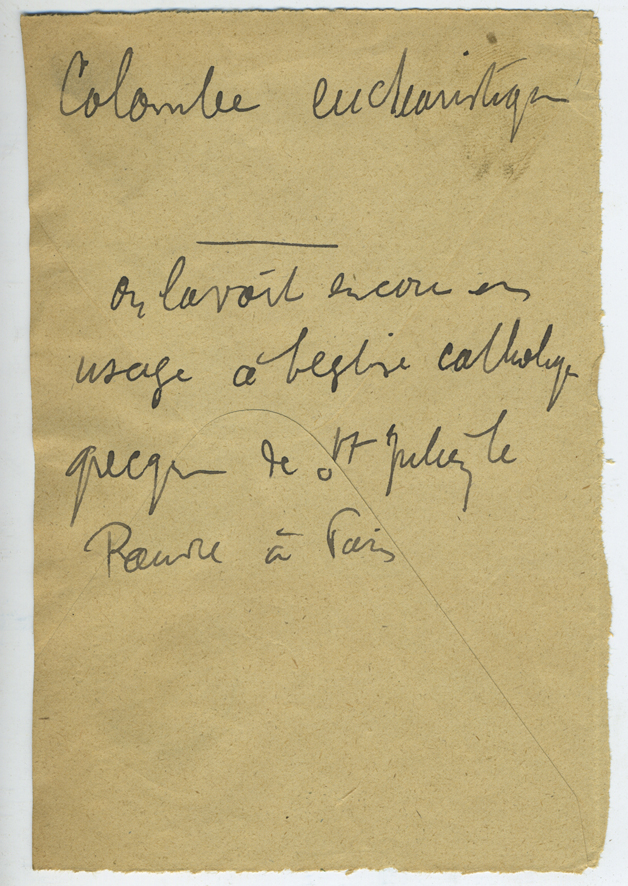 Colombe eucharistique
on la voit encore en
usage à l'eglise catholique
grecque de St Julien le
Pauvre à Paris